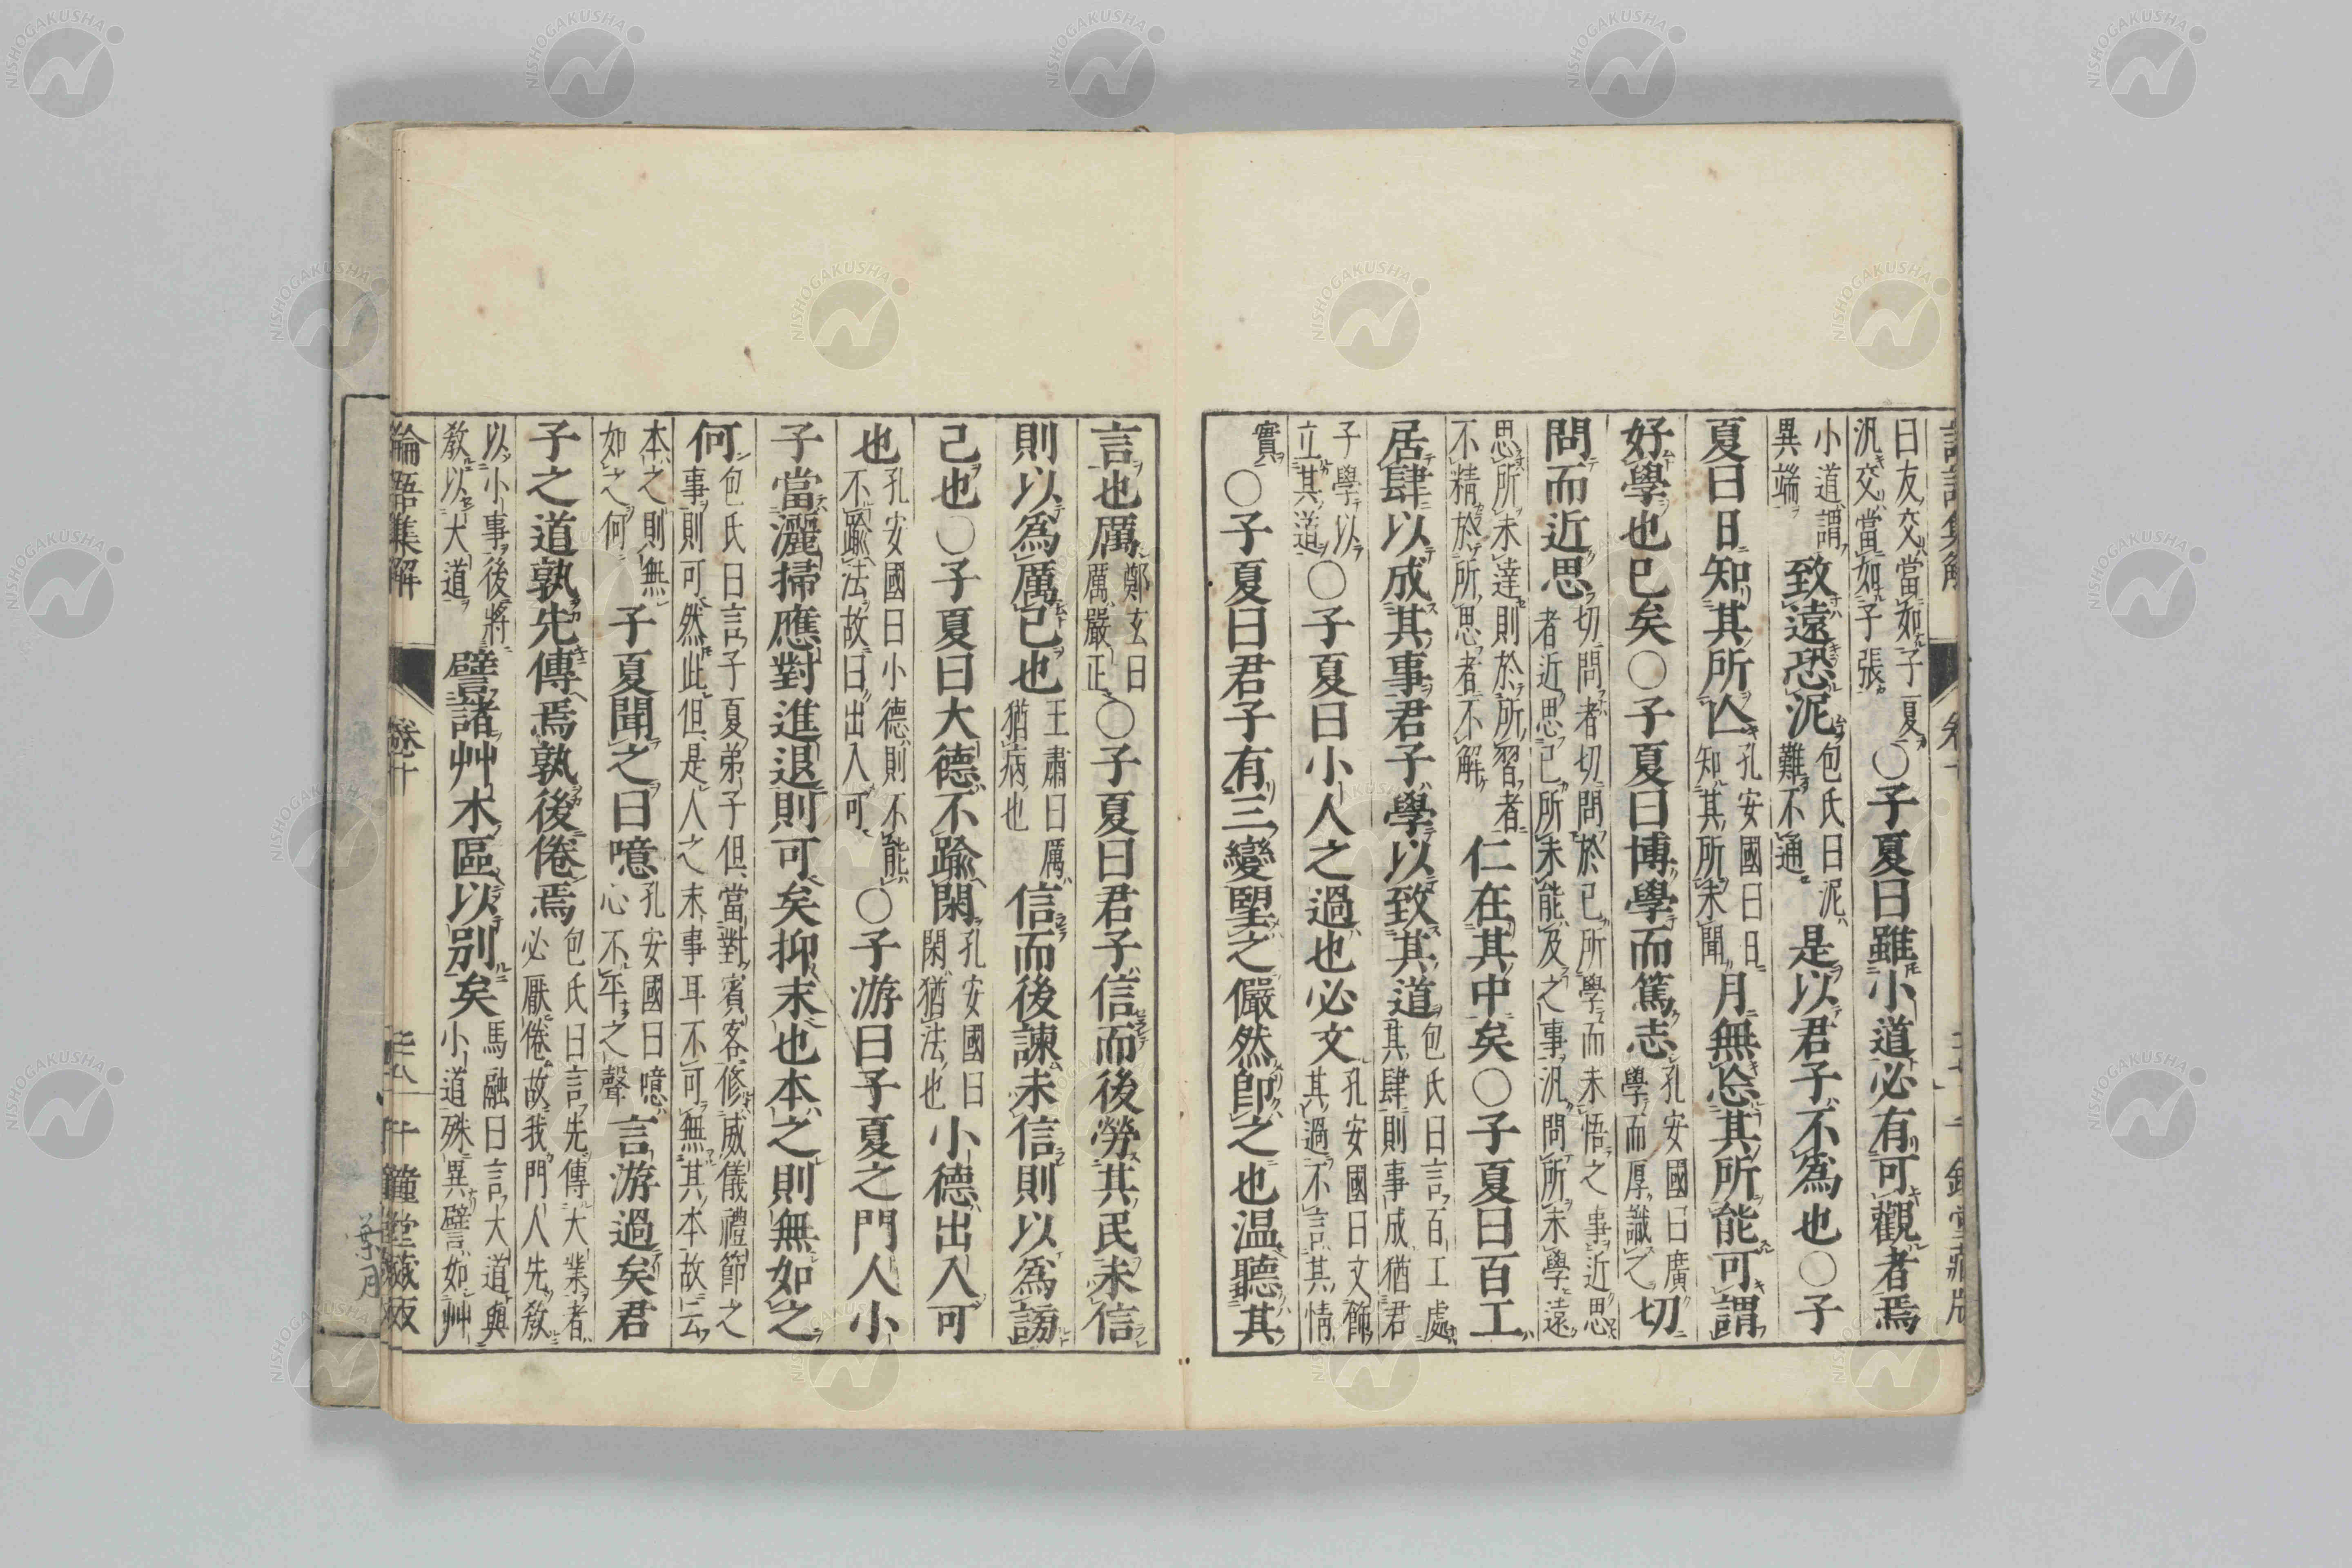 曰友交當如子夏汎交當如子張〇子夏曰雖小道必有可觀者焉
小道謂異端致遠恐泥包氏曰泥難不通是以君子不爲也〇子
夏曰日知其所亾孔安國曰日知其所未聞月無忘其所能可謂
好學也已矣〇子夏曰博學而篤志孔安國曰廣學而厚識之切
問而近思切問者切問於己所學而未悟之事近思者近思己所未能及之事汎問所未學遠
思所未達則於所習者不精於所思者不解仁在其中矣〇子夏曰百工
居肆以成其事君子學以致其道包氏曰言百工處其肆則事成猶君
子學以立其道〇子夏曰小人之過也必文孔安國曰文飾其過不言其情
實〇子夏曰君子有三變望之儼然卽之也温聽其
言也厲鄭玄曰厲嚴正〇子夏曰君子信而後勞其民未信
則以爲厲己也王肅曰厲猶病也信而後諫未信則以爲謗
己也〇子夏曰大德不踰閑孔安國曰閑猶法也小德出入可
也孔安國曰小德則不能不踰法故曰出入可〇子游曰子夏之門人小
子當灑掃應對進退則可矣抑末也本之則無如之
何包氏曰言子夏弟子但當對賓客修威儀禮節之事則可然此但是人之末事耳不可無其本故云
本之則無如之何子夏聞之曰噫孔安國曰噫心不平之聲言游過矣君
子之道孰先傳焉孰後倦焉包氏曰言先傳大業者必厭倦故我門人先敎
以小事後將敎以大道譬諸艸木區以別矣馬融曰言大道與小道殊異譬如艸
論語集解 卷十 千鐘堂藏版